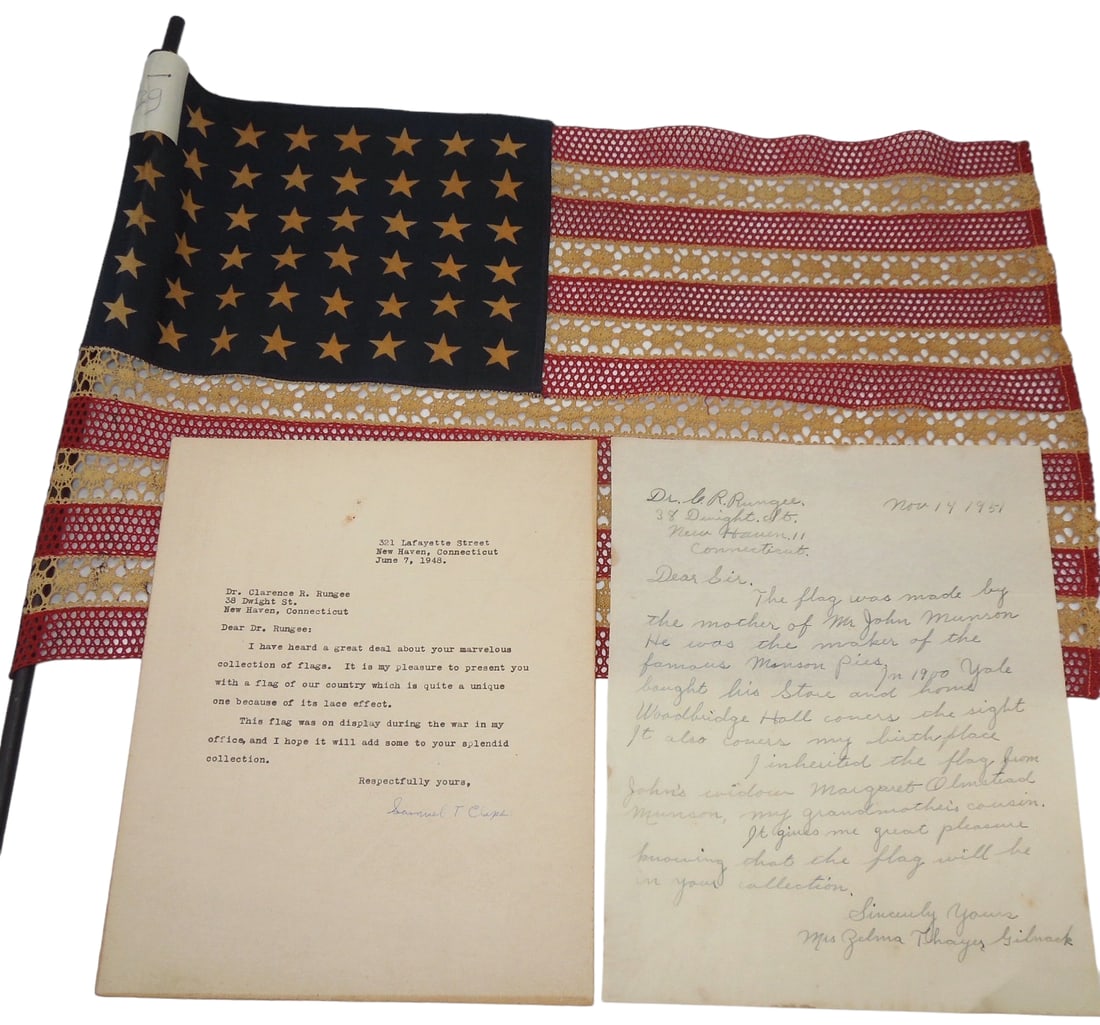 39
321 Lafayette Street
New Haven, Connecticut
June 7, 1948.
Dr. Clarence R. Rungee
38 Dwight St.
New Haven, Connecticut
Dear Dr. Rungee:
I have heard a great deal about your marvelous
collection of flags. It is my pleasure to present you
with a flag of our country which is quite a unique
one because of its lace effect.
This flag was on display during the war in my
office, and I hope it will add some to your splendid
collection.
Respectfully yours,
Samuel T
Dr. C. R. Rungee.
Nov 14 1951
38 Dwight St.
New Haven 11
Connecticut.
Dear Sir.
The flag was made by
the mother of Mr John Munson
He was the maker of the
famous Monson Pies.
In 1900 Yale
bought his Store and home
Woodbridge Hall covers the sight
It also covers my birth place
I inherited the flag from
John's widow Margaret Olmstead
Munson, my grandmother's cousin.
It gives me great pleasure
knowing that the flag will be
in your collection.
Sincerely Yours
Mrs Zelma Thayer Gilnack